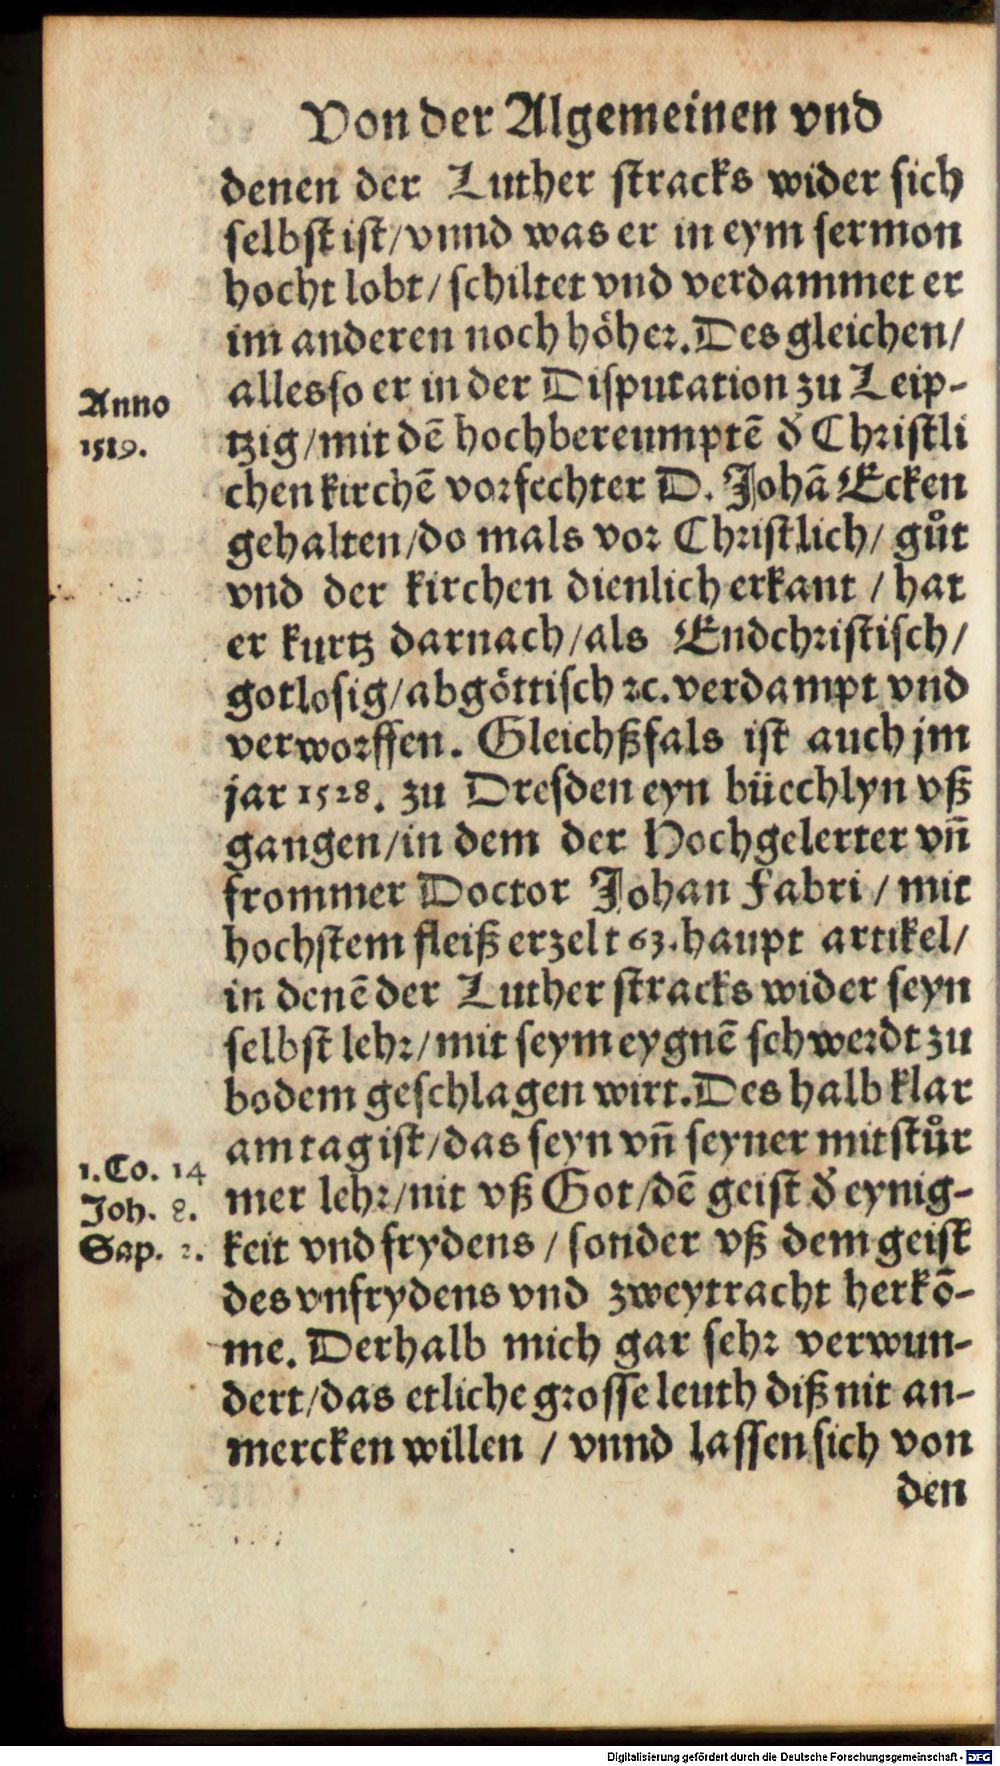 Von der Algemeinen vnd
denen der Luther stracks wider sich
selbst ist/vnnd was er in eym sermon
hocht lobt/schiltet vnd verdammet er
im anderen noch höher. Des gleichen/
alles so er in der Disputation zu Leip-
Anno
1519.
tzig/mit dē hochbereumptē d̕ Christli
chen kirchē vorfechter D. Johā Ecken
gehalten/do mals vor Christlich/ gůt
vnd der kirchen dienlich erkant / hat
er kurtz darnach/als Endchristisch/
gotlosig/abgöttisch ꝛc. verdampt vnd
verworffen. Gleichßfals ist auch jm
jar 1528. zu Dresden eyn büechlyn vß
gangen/in dem der Hochgelerter vn̄
frommer Doctor Johan Fabri / mit
hochstem fleiß erzelt 63. haupt artikel/
in denē der Luther stracks wider seyn
selbst lehr/mit seym eygnē schwerdt zu
bodem geschlagen wirt. Des halb klar
am tag ist/das seyn vn̄ seyner mitstůr
1. Co. 14
Joh. 8.
Sap. 2.
mer lehr/nit vß Got/dē geist d̕ eynig-
keit vnd frydens / sonder vß dem geist
des vnfrydens vnd zweytracht herkō-
me. Derhalb mich gar sehr verwun-
dert/das etliche grosse leuth diß nit an-
mercken willen / vnnd lassen sich von
den
Digitalisierung gefördert durch die Deutsche Forschungsgemeinschaft - DFG